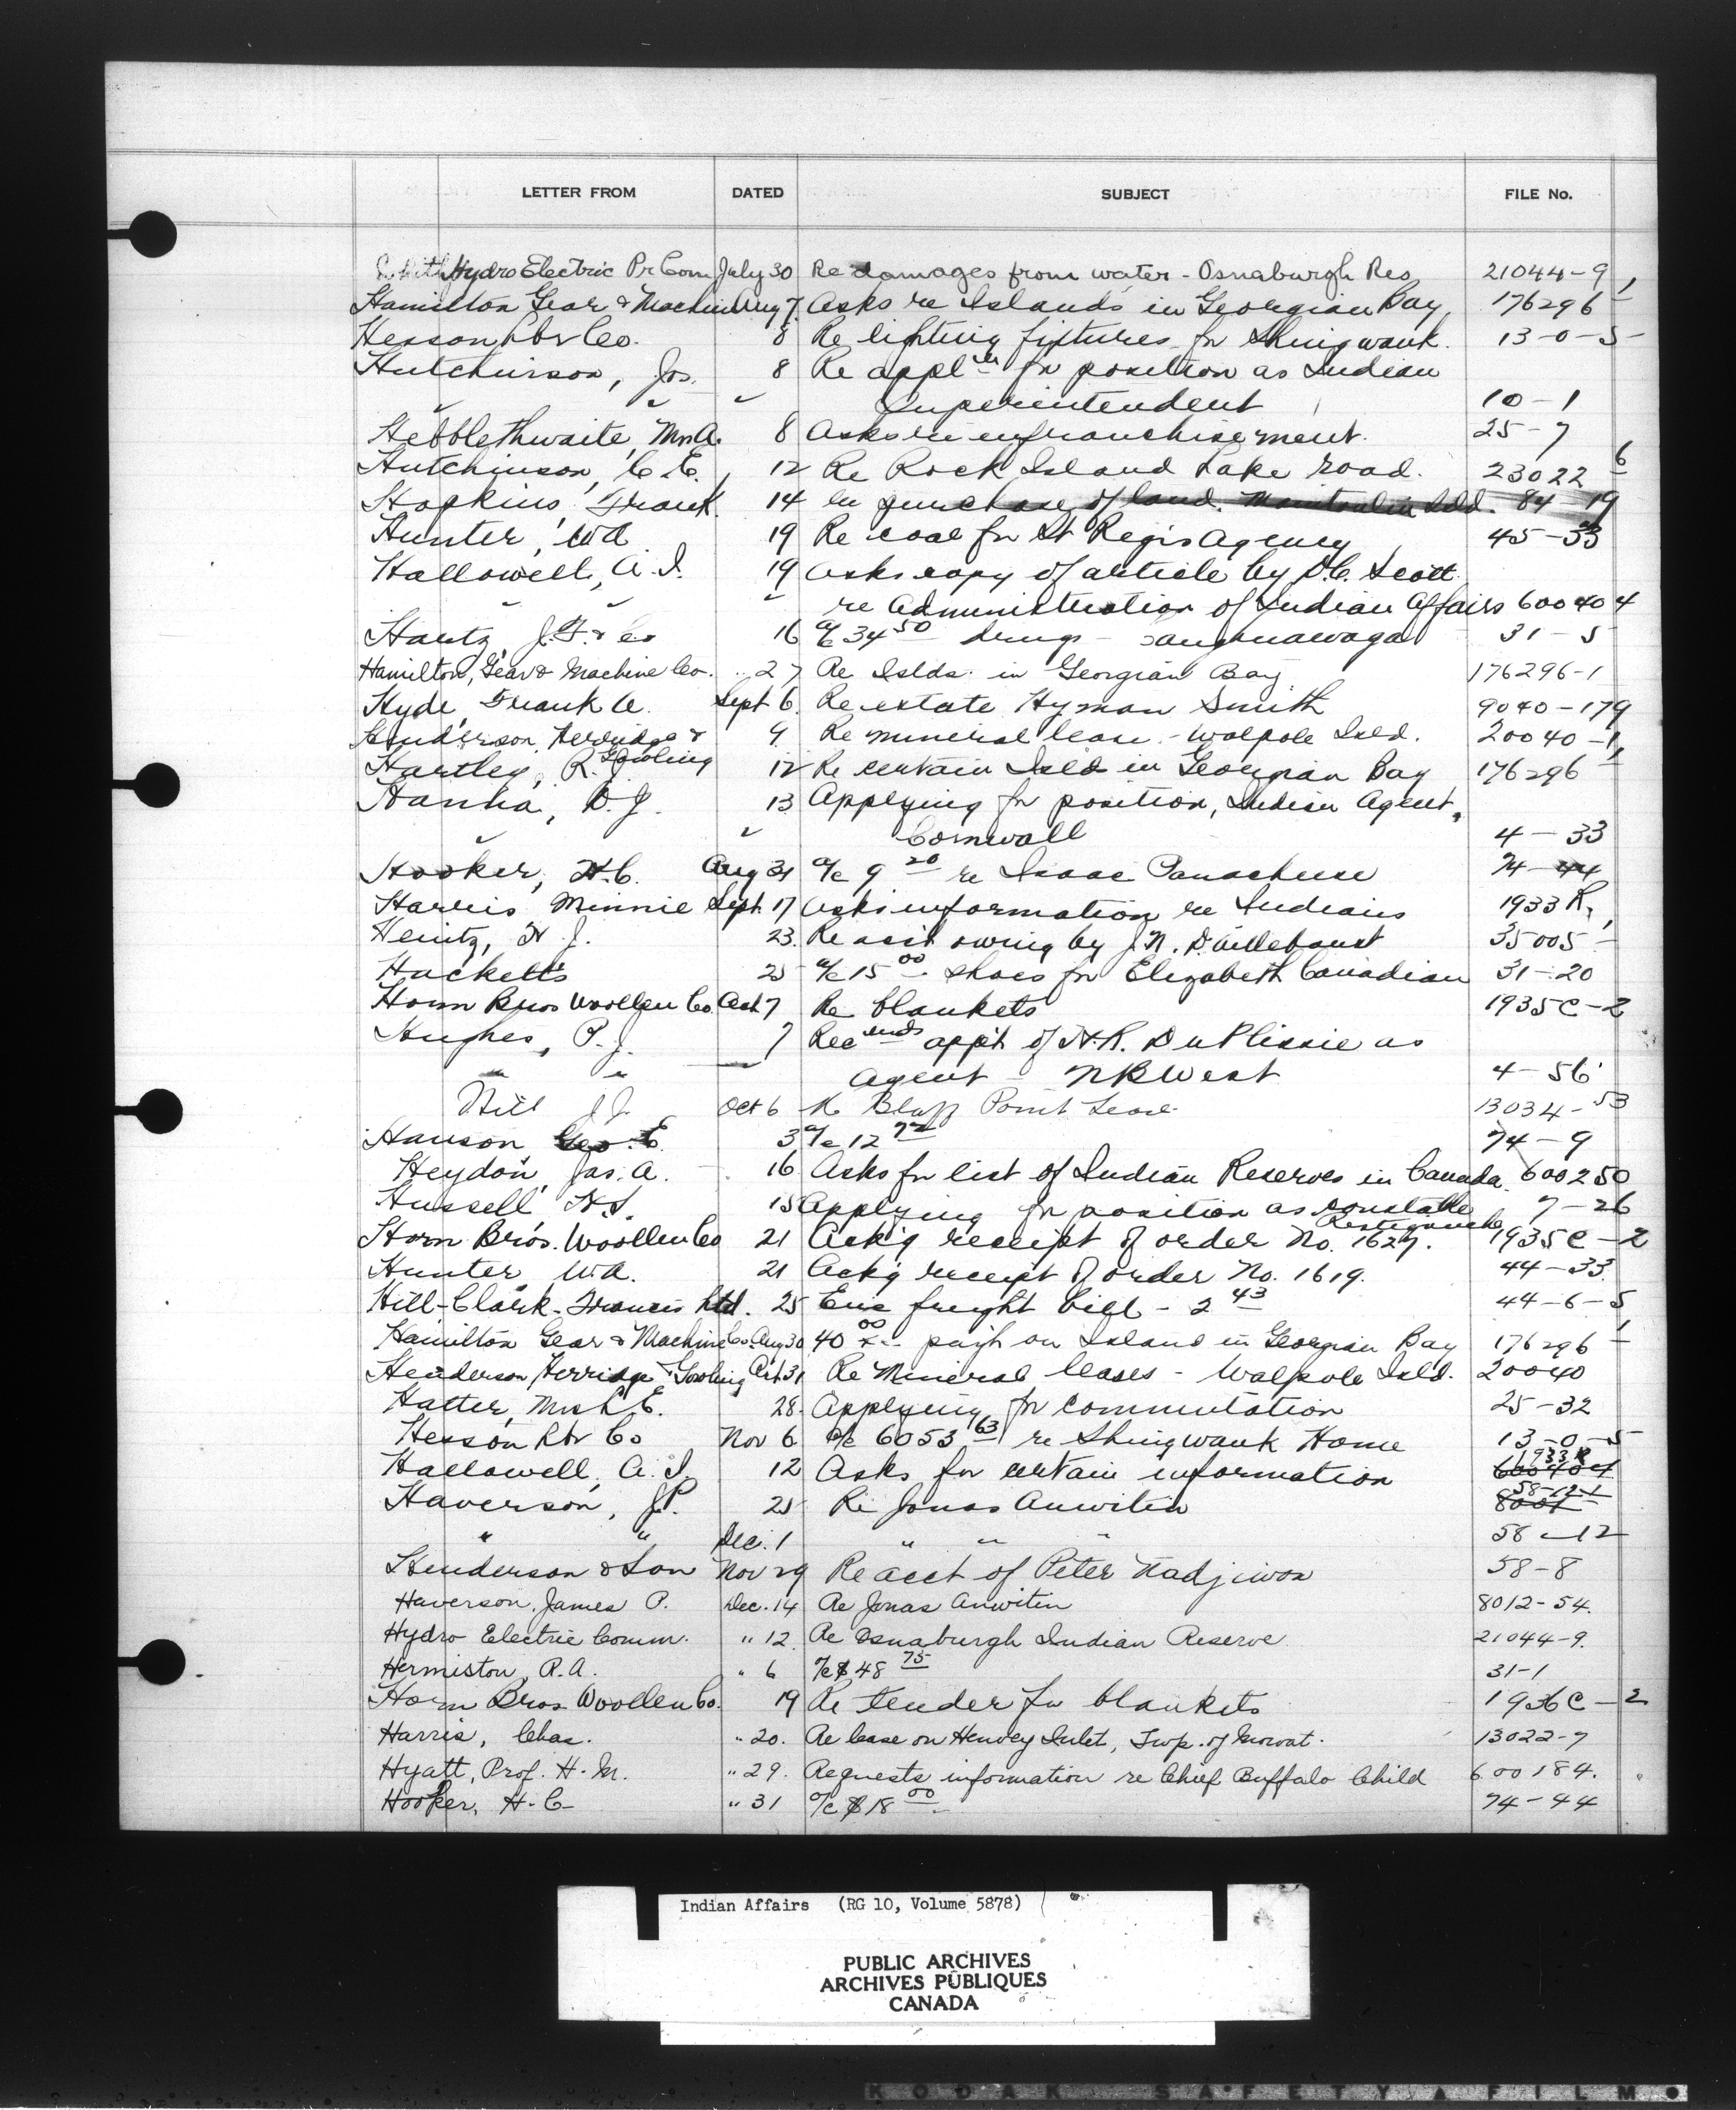 LETTER FROM DATED SUBJECT FILE No.
Hydro Electric Pr Com July 30 Re damages from water - Osnaburgh Res 21044-9
Hamilton Gear & Machine Aug 7 Asks re Islands in Georgian Bay, 176296-1
Hesson Lbr Co. 8 Re lighting fixtures for Shingwauk. 13-0-5
Hutchinson, Jos. 8 Re applica for position as Indian
" " " Superintendent 10-1
Hebblethwaite, Mrs A. 8 Asks re enfranchisement. 25-7
Hutchinson, C.E. 12 Re Rock Island Lake road. 23022-6
Hopkins, Frank 14 re purchase of land. Manitoulin Isld. 84-19
Hunter, W.A 19 Re coal for St Regis Agency 45-33
Hallowell, A.I. 19 Asks copy of article by D.C. Scott
" " " re Administration of Indian Affairs 600404
Hartz, J.F. & Co 16 a/c 34 50 drugs - Caughnawaga 31-5
Hamilton, Gear & Machine Co. " 27 Re Islds. in Georgian Bay 176296-1
Hyde, Frank A. Sept 6. Re estate Hyman Smith 9040-179
Henderson, Herridge & 9 Re mineral lease - Walpole Isld. 20040-1
Gowling
Hartley, R.J. 12 Re certain Isld in Georgian Bay 176296-1
Hanha, D.J. 13 Applying for position, Indian Agent,
" " Cornwall 4-33
Hooker, H.C. Aug 31 a/c 9 20 re Isaac Panacheese 74-44
Harris, Minnie Sept. 17 Asks information re Indians 1933 R,
Heintz, H.J. 23. Re acct owing by J.N. D'Aillebout 35005-1
Hacketts 25 a/c 15 00 shoes for Elizabeth Canadian 31-20
Horn Bros Woollen Co. Oct 7 Re blankets 1935C-2
Hughes, P.J. 7 Recmends app't of H.R. DuPlissie as
" " Agent - NB West 4-56
Hill J.J. Oct 6 Re Bluff Point Lease 13034-53
Hanson Geo. E. 3 a/c 12 72 74-9
Heydon, Jas. A. 16 Asks for list of Indian Reserves in Canada. 600250
Hussell, H.S. 15 Applying for position as constable 7-26
Restigouche
Horn Bros. Woollen Co 21 Ack'g receipt of order No. 1627. 1935C-2
Hunter, W.A. 21 Ack'g receipt of order No. 1619. 44-33
Hill-Clark-Francis Ltd. 25 Enc freight bill - 2 43 44-6-5
Hamilton Gear & Machine Co. Aug 30 40 00 pay't on Island in Georgian Bay 176296-1
Henderson, Herridge & Gowling Oct 31 Re Mineral leases - Walpole Isld. 20040
Hatter, Mrs L.E. 28. Applying for commutation 25-32
Hesson Lbr Co Nov 6 a/c 6053 63 re Shingwauk Home 13-0-5
1933 R
Hallowell, A.I. 12 Asks for certain information 600404
58-12-1
Haverson, J.P. 21 Re Jonas Anwitin 8001
" " Dec. 1 " " 58-12
Henderson & Son Nov 29 Re acct of Peter Nadjiwon 58-8
Haverson, James P. Dec. 14 Re Jonas Anwitin 8012-54.
Hydro Electric Comm. " 12. Re Osnaburgh Indian Reserve 21044-9.
Hermiston, R.A. " 6 a/c $48 75 31-1
Horn Bros Woollen Co. 19 Re tender for blankets 1936C-2
Harris, Chas. " 20. Re lease on Henvey Inlet, Twp. of Mowat. 13022-7
Hyatt, Prof. H.M. " 29. Requests information re Chief Buffalo Child 600184.
Hooker, H.C. " 31 a/c $18 00 74-44
Indian Affairs (RG 10, Volume 5878)
PUBLIC ARCHIVES
ARCHIVES PUBLIQUES
CANADA
KODAK SAFETY FILM